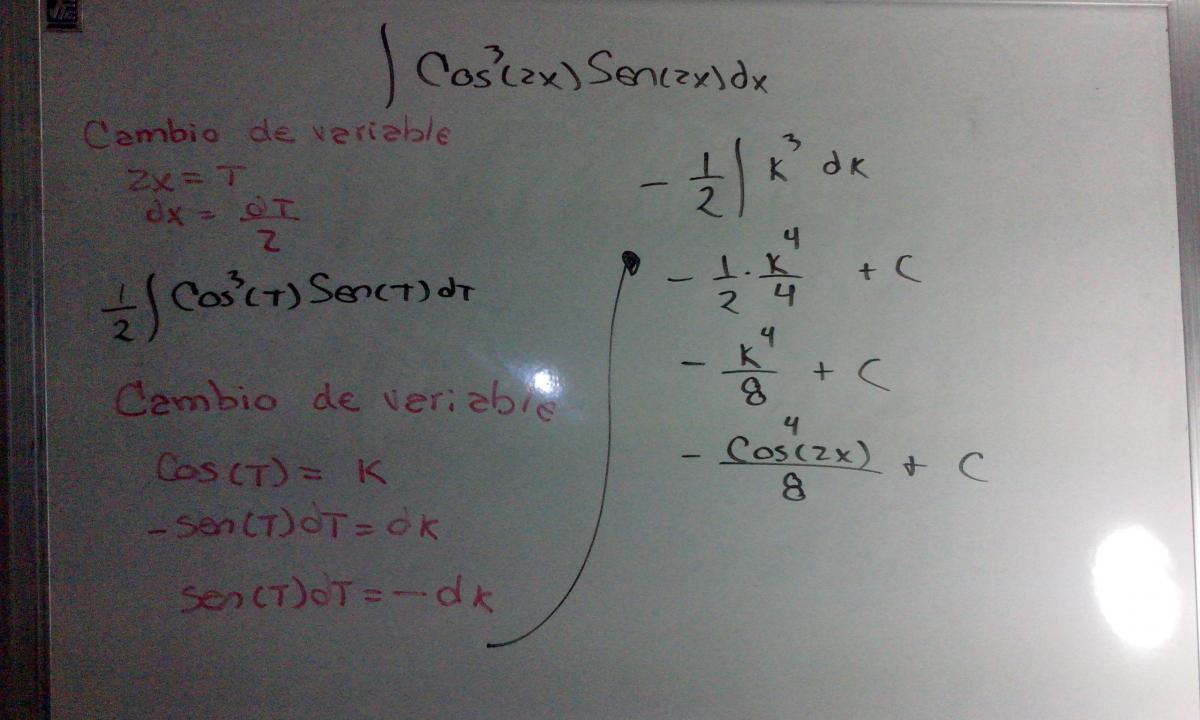 ∫ Cos³(2x) Sen(2x) dx
Cambio de variable
2x = T
dx = dT/2
1/2 ∫ Cos³(T) Sen(T) dT
Cambio de variable
Cos(T) = K
-sen(T)dT = dK
sen(T)dT = -dK
- 1/2 ∫ K³ dK
- 1/2 · K⁴/4 + C
- K⁴/8 + C
- Cos⁴(2x)/8 + C